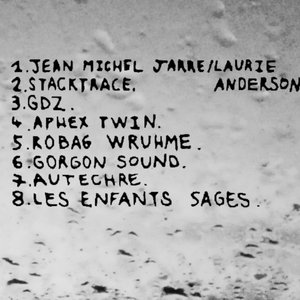 1.JEAN MICHEL JARRE/LAURIE
2.STACKTRACE. ANDERSON
3.GDZ.
4.APHEX TWIN.
5.ROBAG WRUHME.
6.GORGON SOUND.
7.AUTECHRE.
8.LES ENFANTS SAGES.